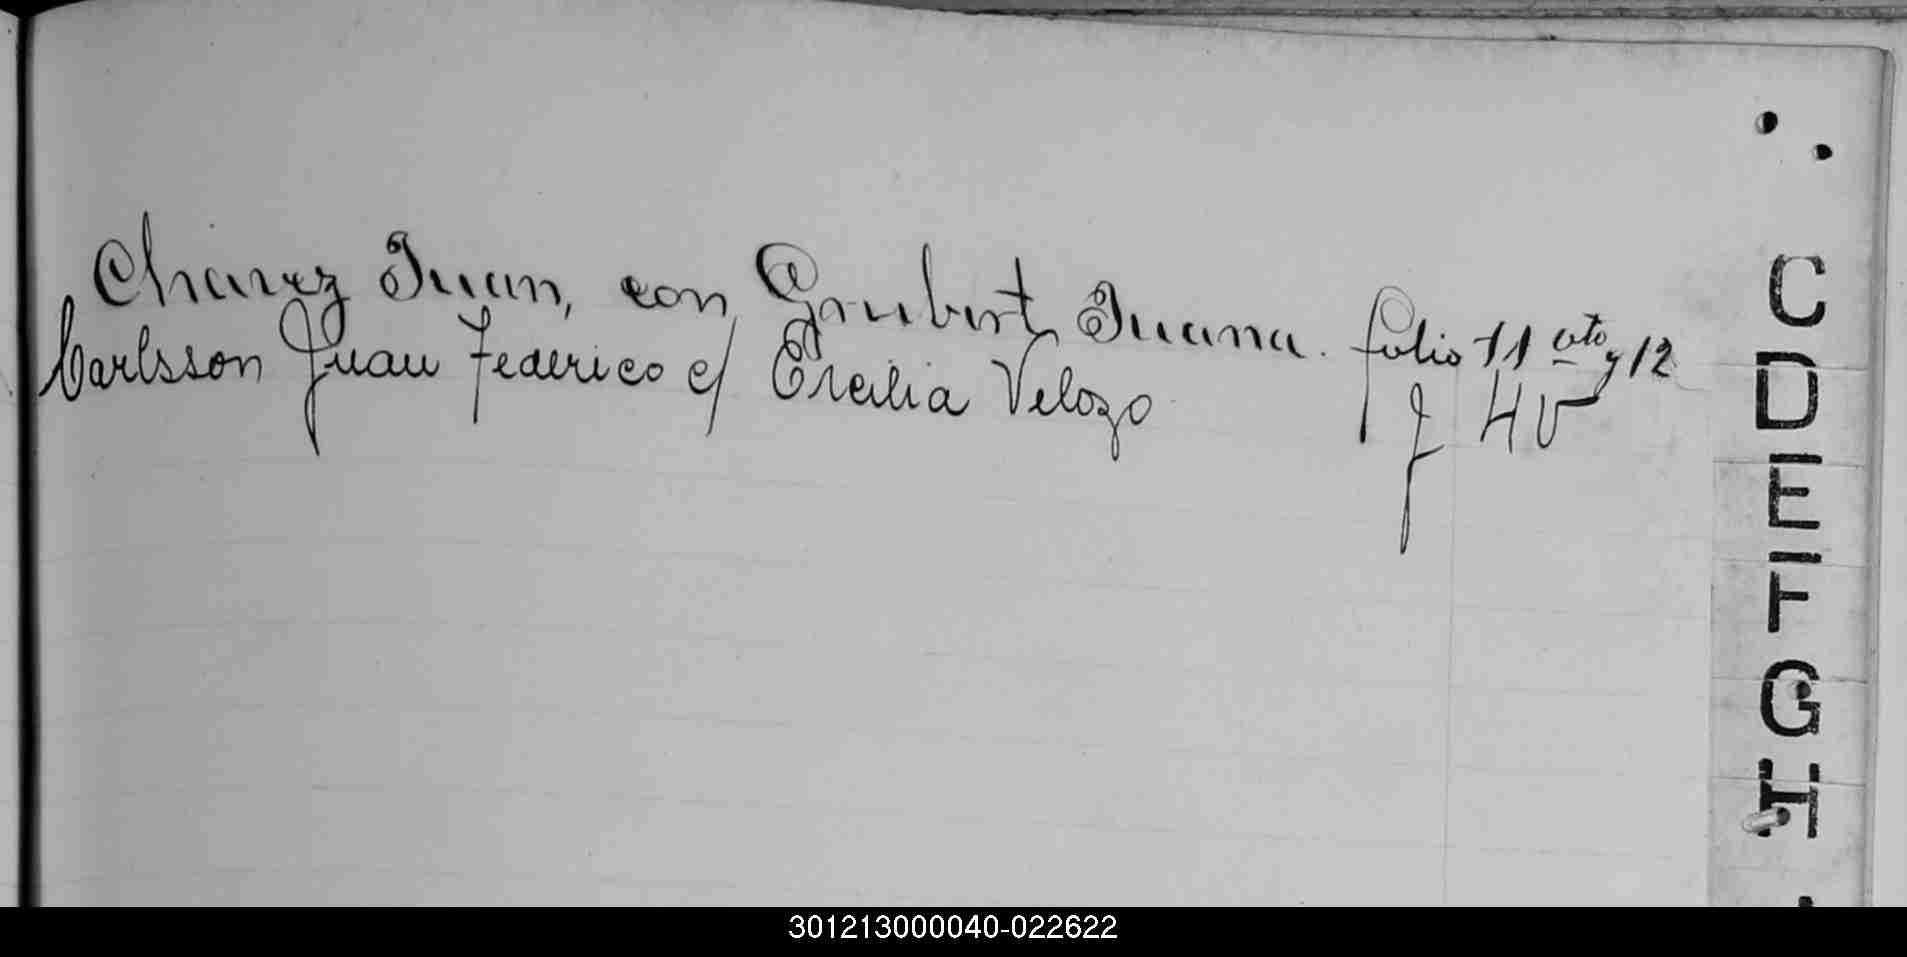 Chavez Juan, con Grubert Juana. folio 11 vto y 12
Carlsson Juan Federico c/ Ercilia Velozo f 40
C
D
E
F
G
H
301213000040-022622